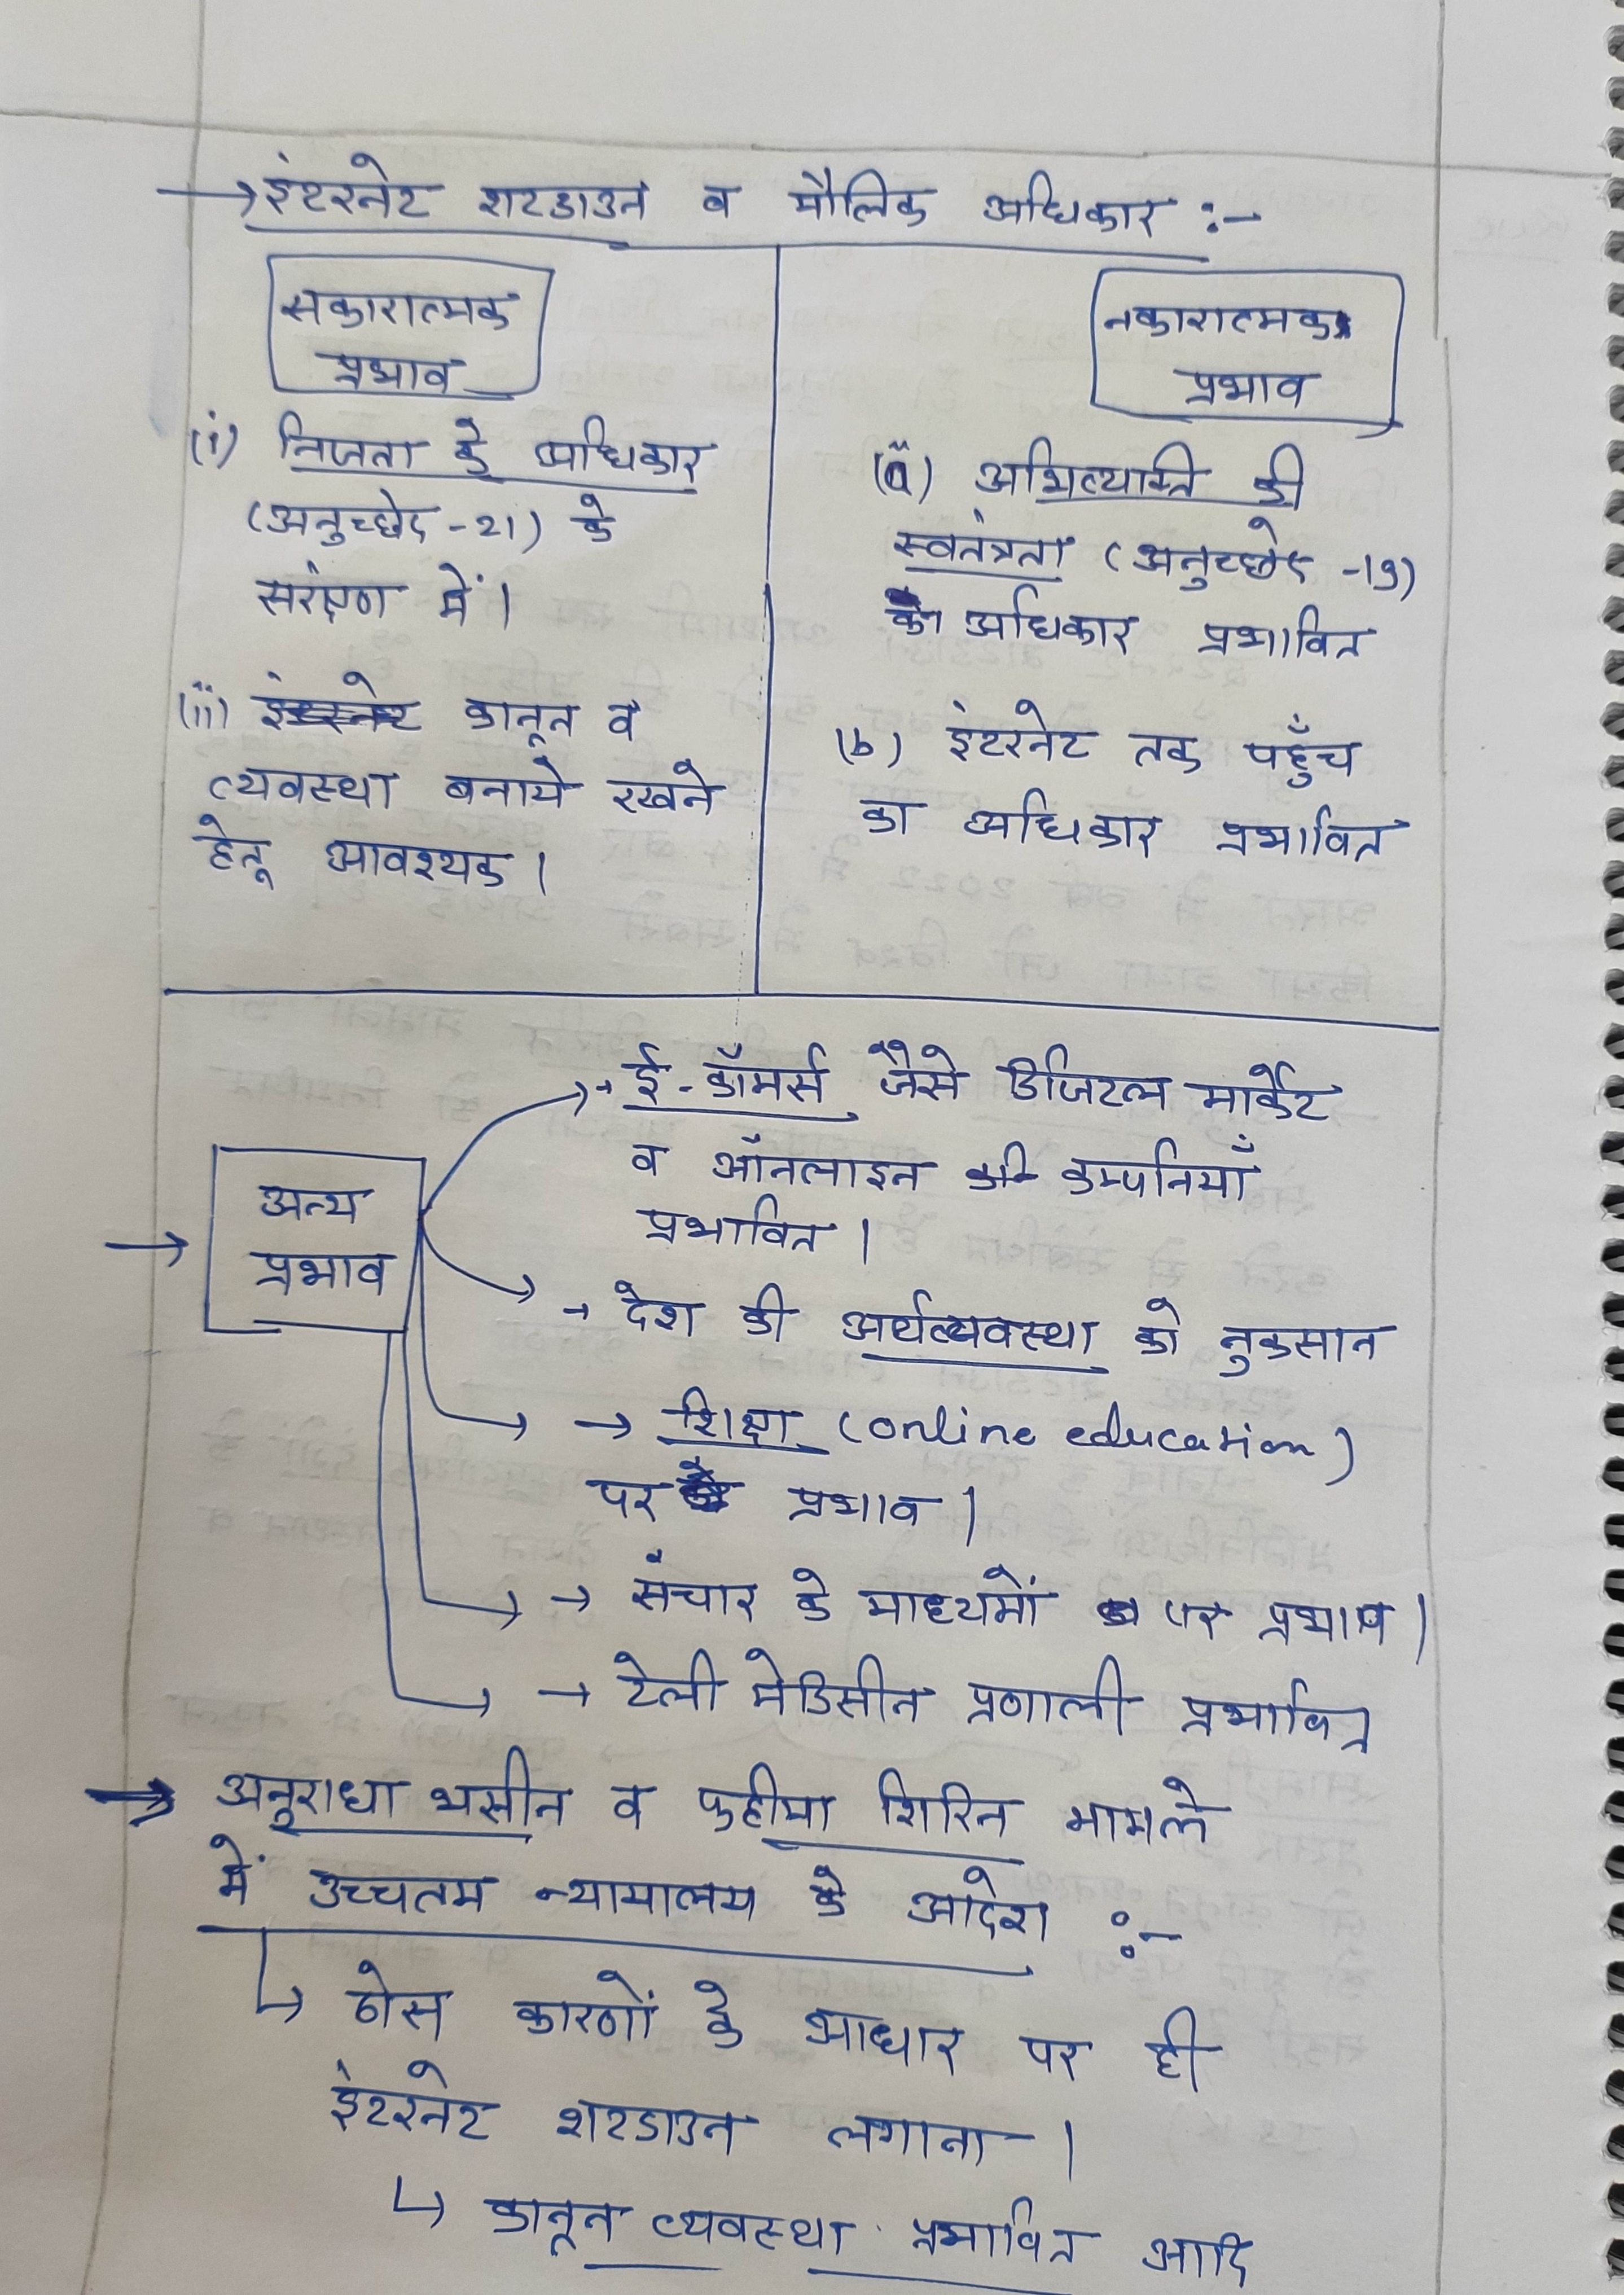 → इंटरनेट शटडाउन व मौलिक अधिकार :-
सकारात्मक
प्रभाव
(i) निजता के अधिकार
(अनुच्छेद -21) के
सरंक्षण में।
(ii) इंटरनेट कानून व
व्यवस्था बनाये रखने
हेतू आवश्यक।
नकारात्मक
प्रभाव
(a) अभिव्यक्ति की
स्वतंत्रता (अनुच्छेद -19)
का अधिकार प्रभावित
(b) इंटरनेट तक पहुँच
का अधिकार प्रभावित
→ ई-कॉमर्स जैसे डिजिटल मार्केट
व ऑनलाइन की कम्पनियाँ
प्रभावित।
→ अन्य
प्रभाव
→ देश की अर्थव्यवस्था को नुकसान
→ शिक्षा (online education)
पर प्रभाव।
→ संचार के माध्यमों पर प्रभाव।
→ टेली मेडिसीन प्रणाली प्रभावित
→ अनुराधा भसीन व फहीमा शिरिन मामले
में उच्चतम न्यायालय के आदेश :-
↳ ठोस कारणों के आधार पर ही
इंटरनेट शटडाउन लगाना।
↳ कानून व्यवस्था प्रभावित आदि